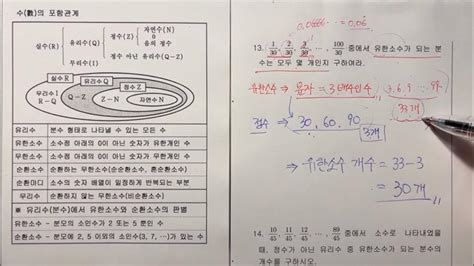 수(數)의 포함관계
실수(R)
유리수(Q)
정수(Z)
자연수(N)
0
음의 정수
정수 아닌 유리수(Q-Z)
무리수(I)
실수(R)
유리수(Q)
정수(Z)
무리수 I
R-Q
Q-Z
Z-N
자연수(N)
유리수 분수 형태로 나타낼 수 있는 모든 수
유한소수 소수점 아래의 0이 아닌 숫자가 유한개인 수
무한소수 소수점 아래의 0이 아닌 숫자가 무한개인 수
순환소수 순환하는 무한소수(순순환소수, 혼순환소수)
순환마디 소수의 숫자 배열이 일정하게 반복되는 부분
무리수 순환하지 않는 무한소수(비순환소수)
※ 유리수(분수)에서 유한소수와 순환소수의 판별
유한소수 - 분모의 소인수가 2 또는 5인 수
순환소수 - 분모에 2, 5이외의 소인수(3, 7, …)가 있는 수
0.0666… = 0.06
13. 1/30, 2/30, 3/30, …, 100/30 중에서 유한소수가 되는 분
수는 모두 몇 개인지 구하여라.
유한소수 ⇒ 분자 = 3의 배수인 수
3, 6, 9 … 99
33개
정수 ⇒ 30, 60, 90
3개
⇒ 유한소수 개수 = 33-3
= 30개
14. 10/45, 11/45, 12/45, …, 중에서 소수로 나타내었을
때, 정수가 아닌 유리수 중 유한소수가 되는 분수의
개수를 구하여라.